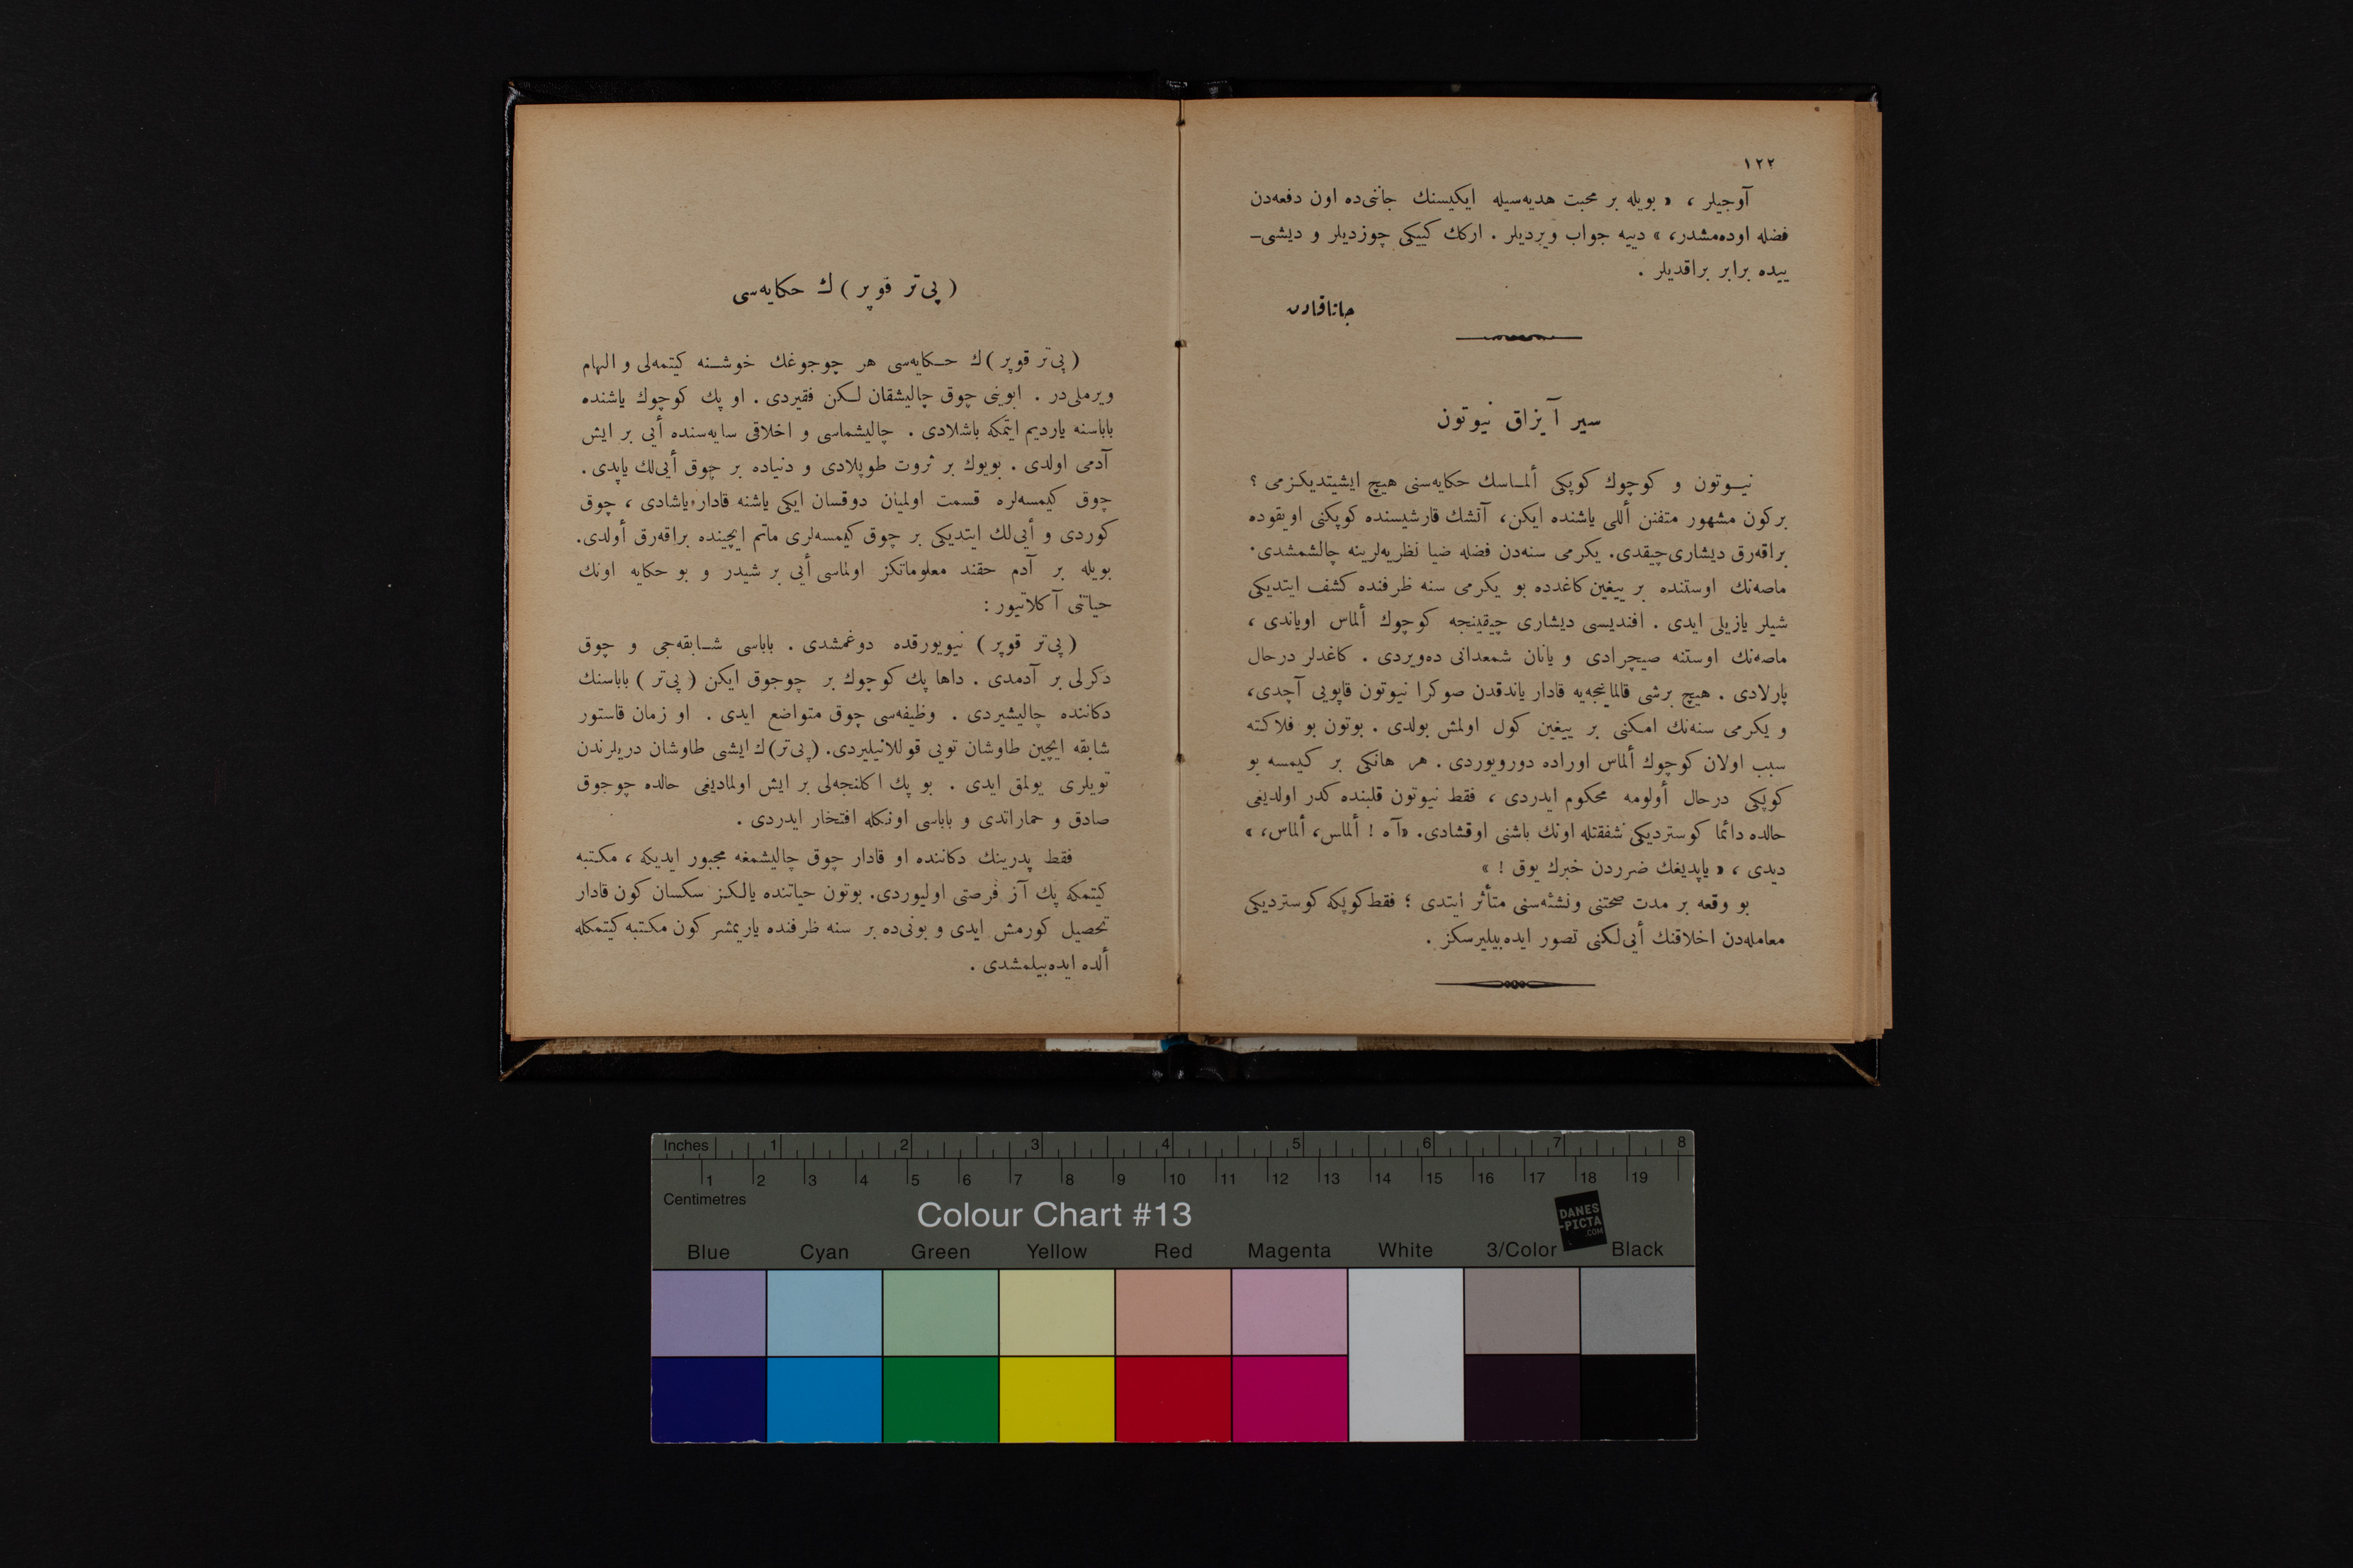 ١٢٢
آوجیلر ، « بویله بر محبت هدیه‌سیله ایکیسنك جاننی‌ده اون دفعه‌دن
فضله اوده‌مشدر، » دییه جواب ویردیلر . ارکك کییکی چوزدیلر و دیشی‌ـ
ییده برابر براقدیلر .
جاناقادن
سیر آیزاق نیوتون
نیـوتون و کوچوك کوپکی ألمـاسك حکایه‌سنی هیچ ایشیتدیکـزمی ؟
برکون مشهور متفنن أللی یاشنده ایکن، آتشك قارشیسنده کوپکنی اویقوده
براقه‌رق دیشاری‌چیقدی. یکرمی سنه‌دن فضله ضیا نظریه‌لرینه چالشمشدی.
ماصه‌نك اوستنده بر ییغین کاغدده بو یکرمی سنه ظرفنده کشف ایتدیکی
شیلر یازیلی ایدی . افندیسی دیشاری چیقینجه کوچوك ألماس اویاندی ،
ماصه‌نك اوستنه صیچرادی و یانان شمعدانی ده‌ویردی . کاغدلر درحال
پارلادی . هیچ برشی قالماینجه‌یه قادار یاندقدن صوکرا نیوتون قاپویی آچدی،
و یکرمی سنه‌نك امکنی بر ییغین کول اولمش بولدی . بوتون بو فلاکته
سبب اولان کوچوك ألماس اوراده دورویوردی . هر هانکی بر کیمسه بو
کوپکی درحال أولومه محکوم ایدردی ، فقط نیوتون قلبنده کدر اولدیغی
حالده دائما کوستردیکی شفقتله اونك باشنی اوقشادی. «آه ! ألماس، ألماس، »
دیدی ، « یاپدیغك ضرردن خبرك یوق ! »
بو وقعه بر مدت صحتنی ونشئه‌سنی متأثر ایتدی ؛ فقط کوپکه کوستردیکی
معامله‌دن اخلاقنك أیی‌لکنی تصور ایده‌بیلیرسکز .
( پی‌تر قوپر ) ك حکایه‌سی
( پی‌تر قوپر ) ك حـکایه‌سی هر چوجوغك خوشـنه کیتمه‌لی و الهام
ویرملی‌در . ابوینی چوق چالیشقان لـکن فقیردی . او پك کوچوك یاشنده
باباسنه یاردیم ایتمکه باشلادی . چالیشماسی و اخلاقی سایه‌سنده أیی بر ایش
آدمی اولدی . بویوك بر ثروت طوپلادی و دنیاده بر چوق أیی‌لك یاپدی .
چوق کیمسه‌لره قسمت اولمیان دوقسان ایکی یاشنه قادار یاشادی ، چوق
کوردی و أیی‌لك ایتدیکی بر چوق کیمسه‌لری ماتم ایچینده براقه‌رق أولدی.
بویله بر آدم حقند معلوماتکز اولماسی أیی بر شیدر و بو حکایه اونك
حیاتنی آکلاتیور :
( پی‌تر قوپر ) نیویورقده دوغمشدی . باباسی شـابقه‌جی و چوق
دکرلی بر آدمدی . داها پك کوچوك بر چوجوق ایکن ( پی‌تر ) باباسنك
دکاننده چالیشیردی . وظیفه‌سی چوق متواضع ایدی . او زمان قاستور
شابقه ایچین طاوشان تویی قوللانیلیردی. (پی‌تر)ك ایشی طاوشان دریلرندن
تویلری یولمق ایدی . بو پك اکلنجه‌لی بر ایش اولمادیغی حالده چوجوق
صادق و حماراتدی و باباسی اونکله افتخار ایدردی .
فقط پدرینك دکاننده او قادار چوق چالیشمغه مجبور ایدیکه ، مکتبه
کیتمکه پك آز فرصتی اولیوردی. بوتون حیاتنده یالکـز سکسان کون قادار
تحصیل کورمش ایدی و بونی‌ده بر سنه ظرفنده یاریمشر کون مکتبه کیتمکله
ألده ایده‌بیلمشدی .
Inches 1 2 3 4 5 6 7 8
1 2 3 4 5 6 7 8 9 10 11 12 13 14 15 16 17 18 19
Centimetres
Colour Chart #13
DANES
-PICTA
.COM
Blue Cyan Green Yellow Red Magenta White 3/Color Black